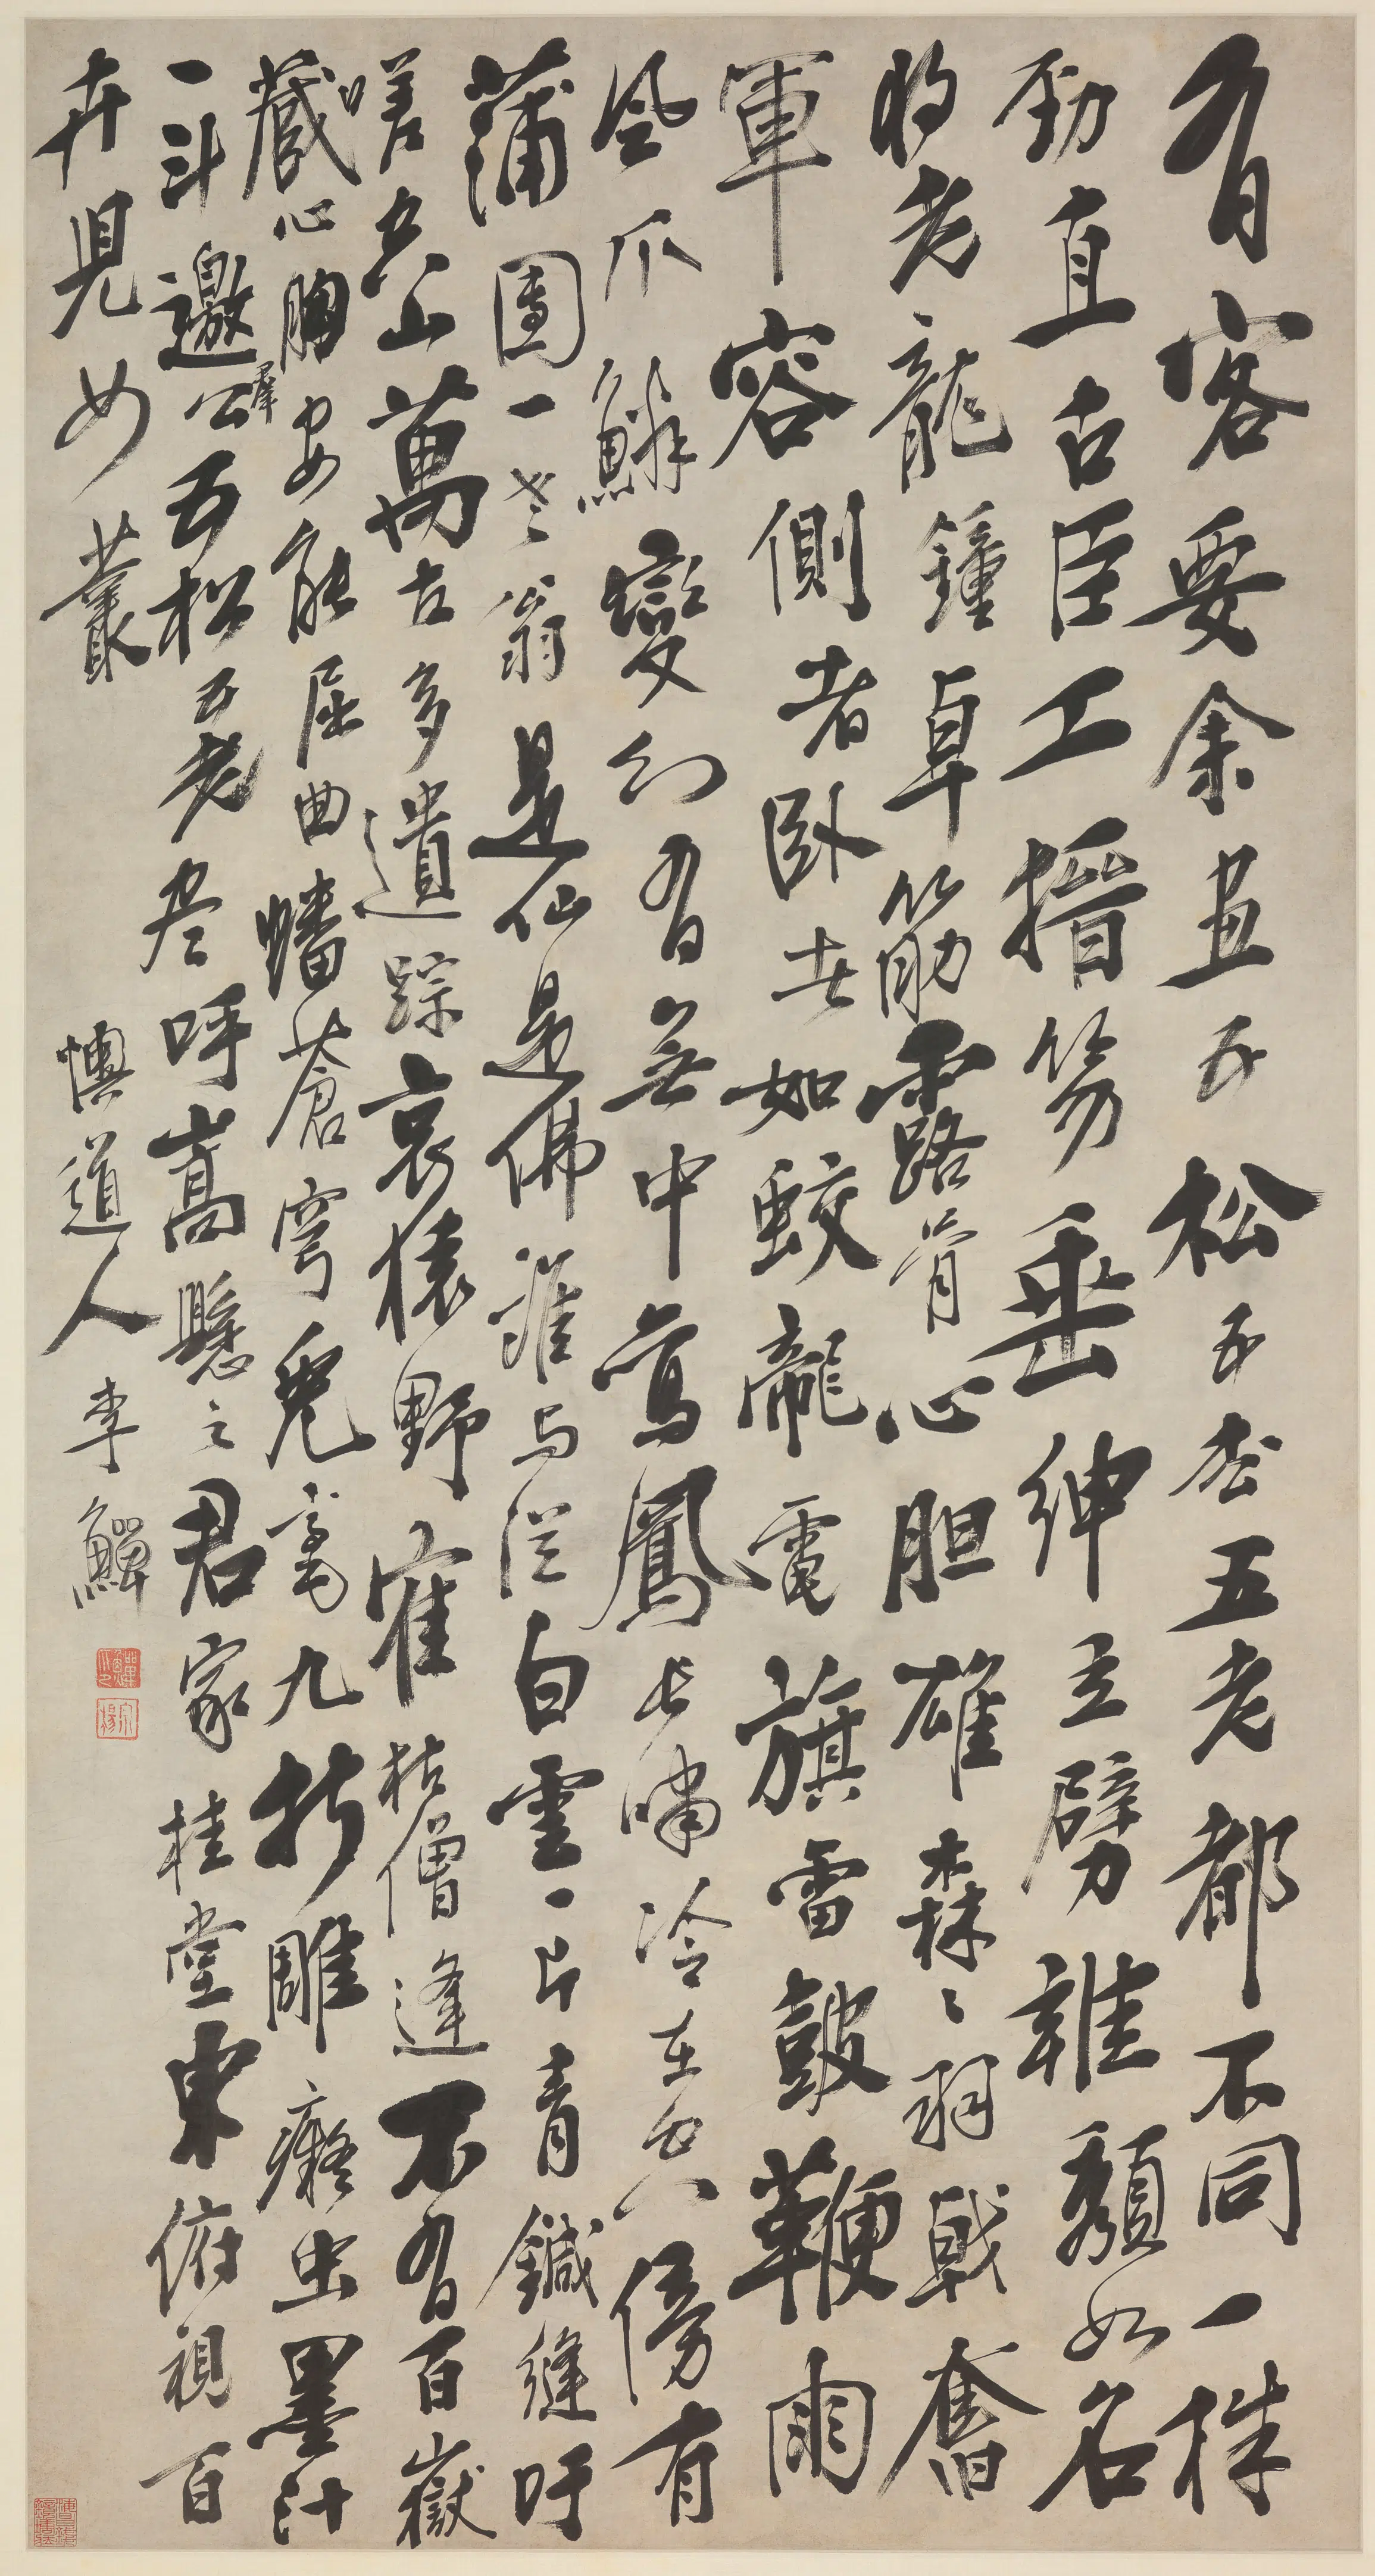 有客要余畫五松五松五老都不同一株
勁直古臣工搢笏垂紳立劈雍頹如名
將老龍鐘卓筋露骨心胆雄森森羽戟奮
軍容側者臥者如蛟龍電旗雷鼓鞭雨
風爪鱗變幻有無中鸞鳳長嘯冷在空傍有
蒲團一老翁是仙是佛誰與從白雲一片青鍼縫吁
嗟空山萬古多遺踪哀猿野寉枯僧逢不有百嶽
藏心胸安能屈曲蟠蒼穹兔毫九折雕癡虫墨汁
一斗邀羣公五松五老尽呼嵩懸之君家桂堂東俯視百
卉兒女叢
懊道人李鱓